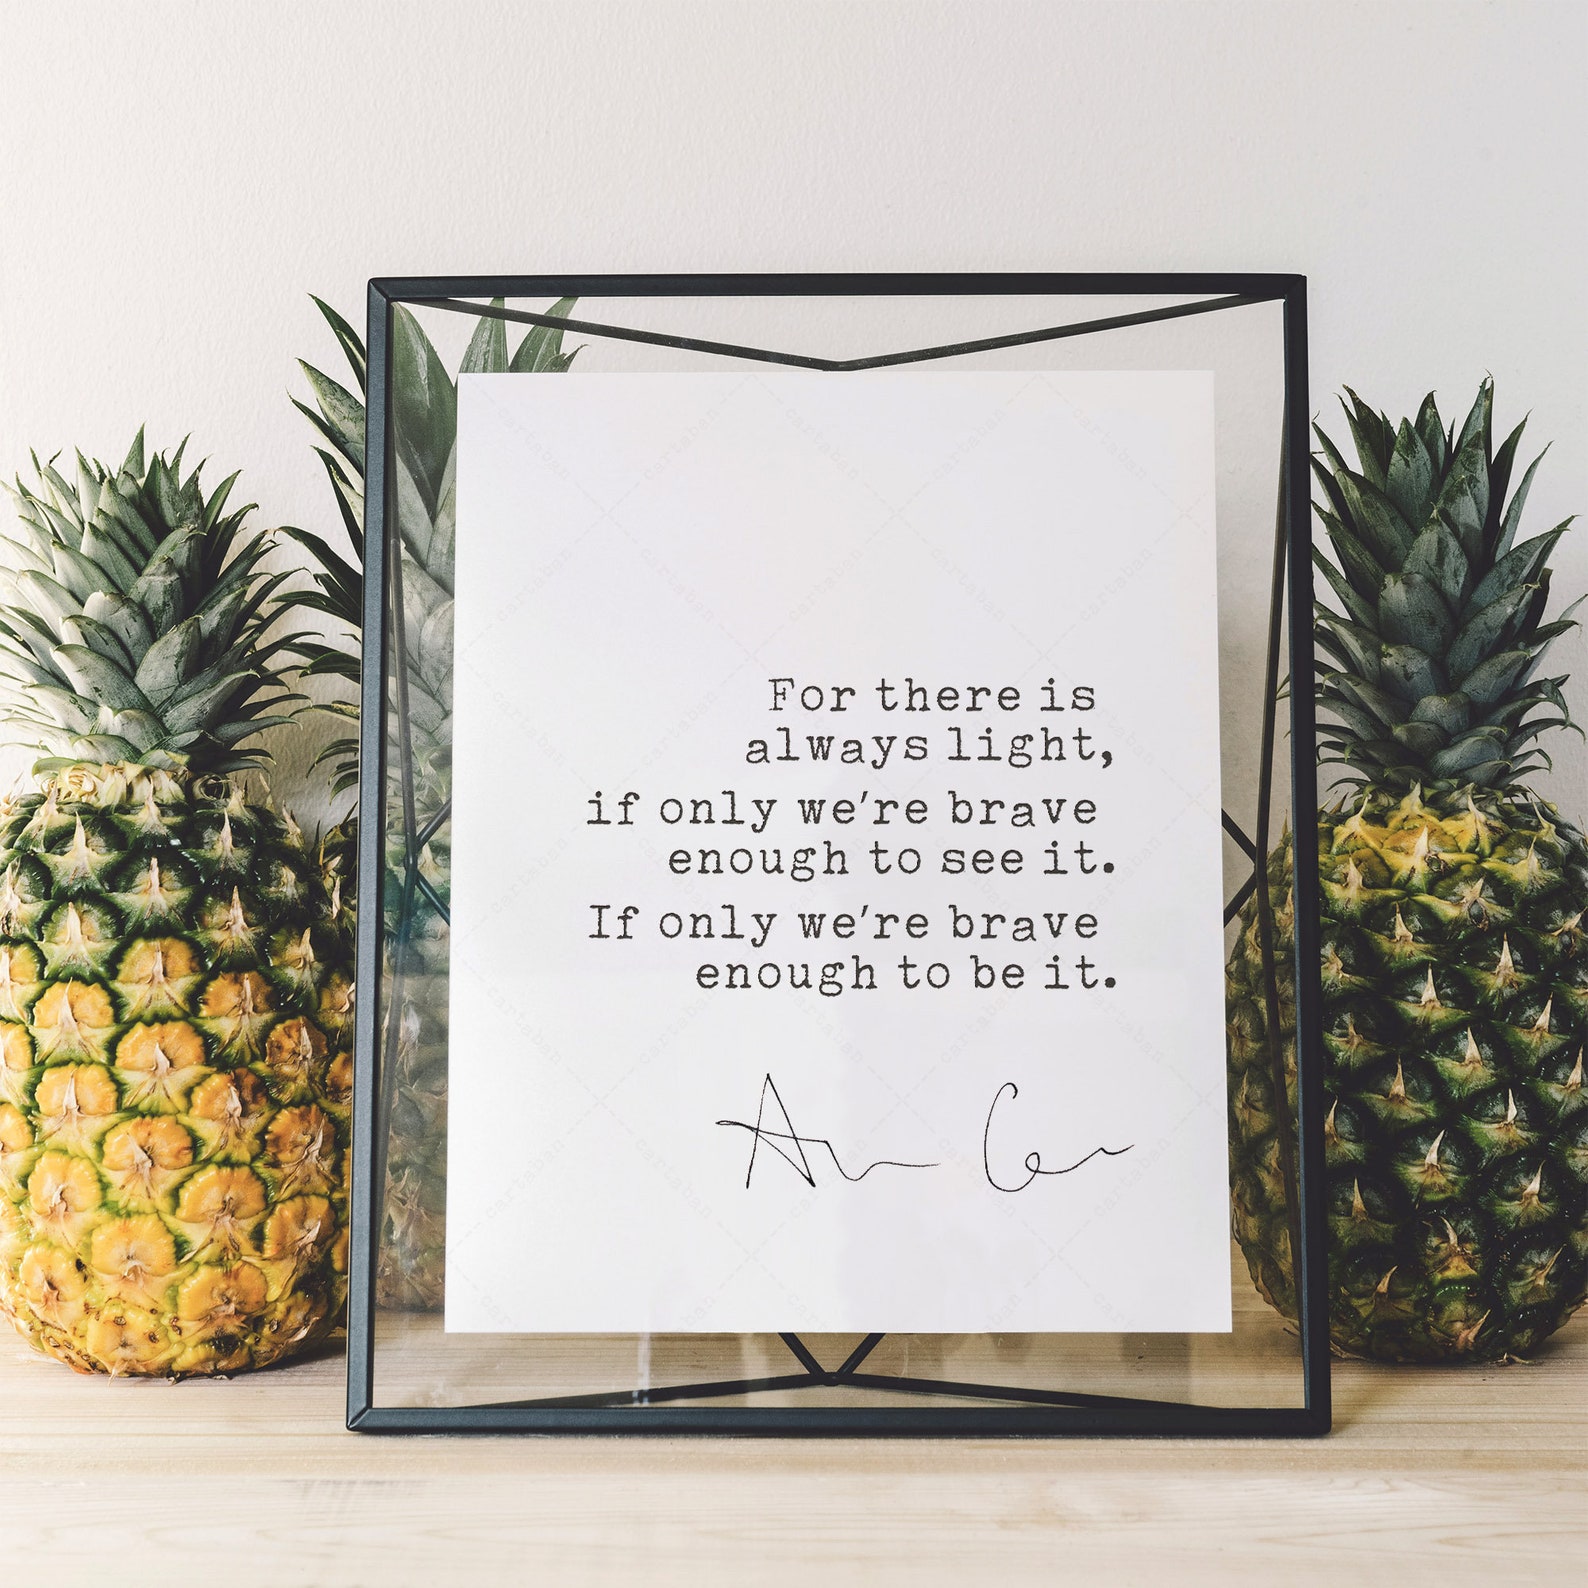 For there is
always light,
if only we're brave
enough to see it.
If only we're brave
enough to be it.
cartaban